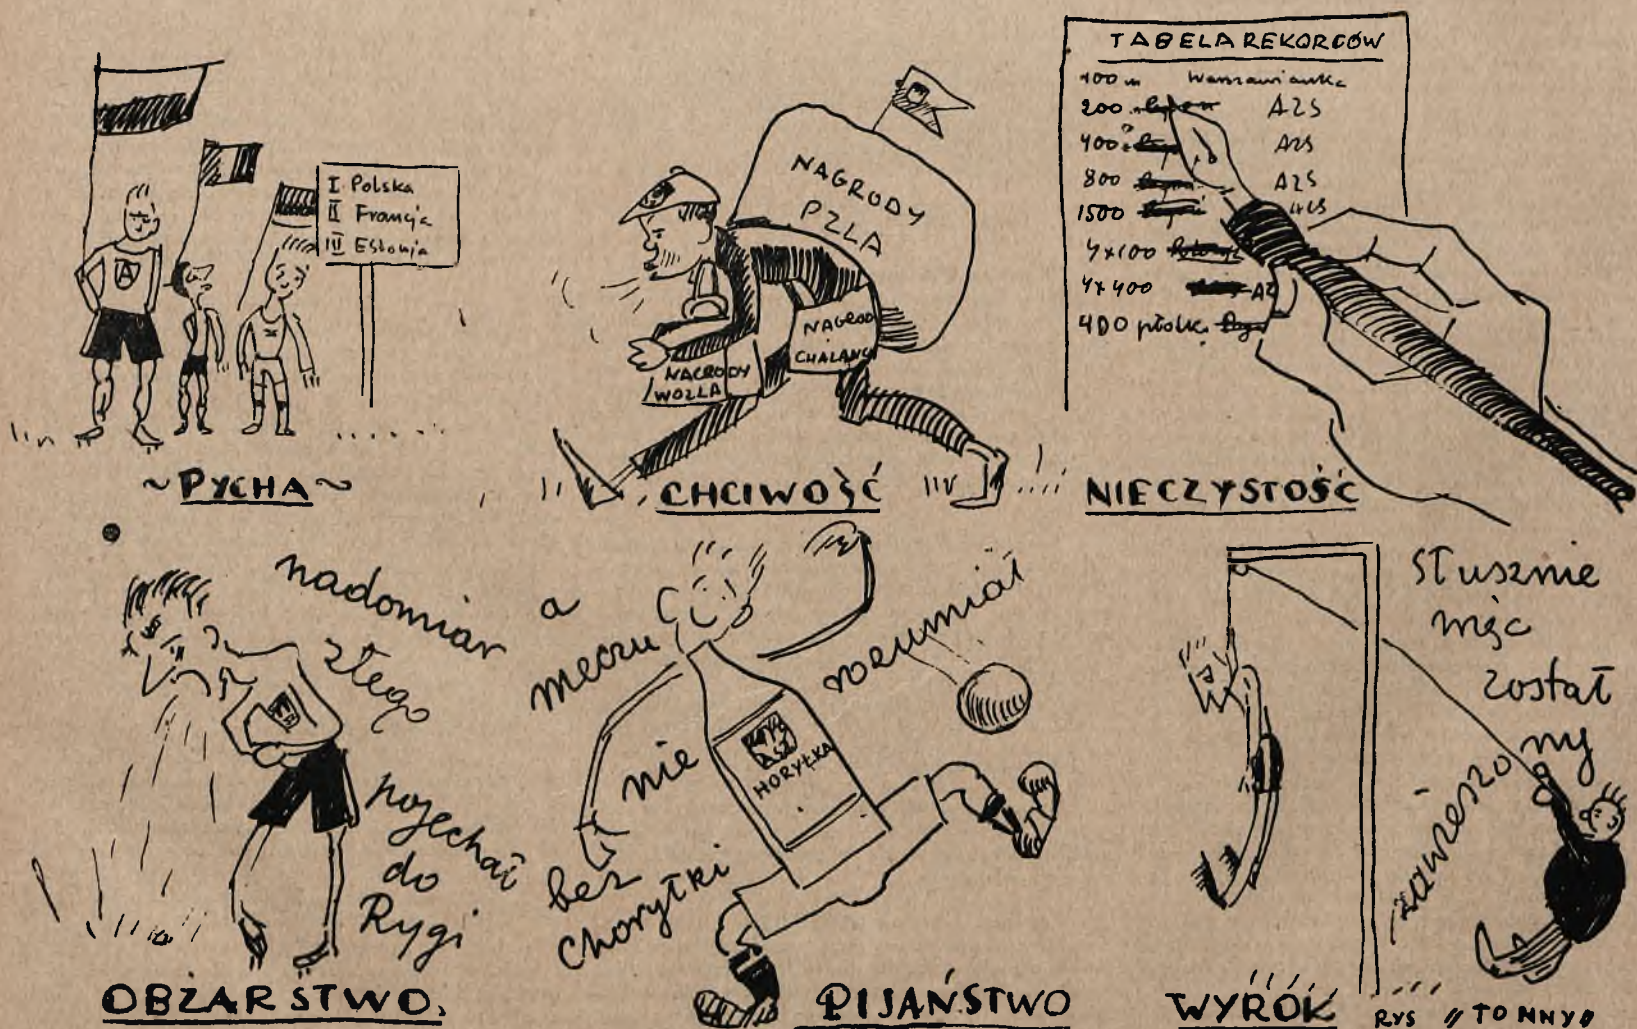 I Polska
II Francja
III Estonja
~ PYCHA ~
NAGRODY
PZLA
NAGROD
CHALANG
NAGRODY
WOZLA
CHCIWOŚĆ
TABELA REKORDÓW
100 m Warszawianka
200 AZS
400 AZS
800 AZS
1500 AZS
4x100
4x400 AZ
400 płotki
NIECZYSTOŚĆ
nadomiar
złego
pojechał
do
Rygi
OBŻARSTWO.
a
meczu
nie
rozumiał
bez
choryłki
HORYŁKA
PIJAŃSTWO
Słusznie
więc
został
zawieszony
WYRÓK
RYS "TONNY"